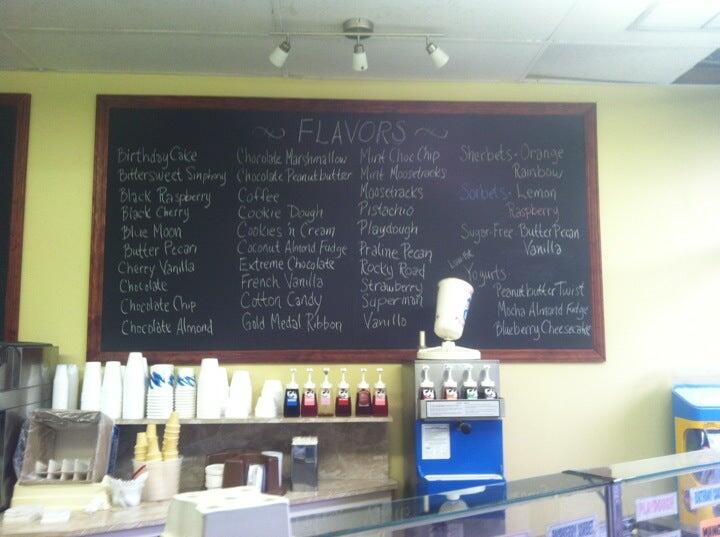 FLAVORS
Birthday Cake
Bittersweet Sinphony
Black Raspberry
Black Cherry
Blue Moon
Butter Pecan
Cherry Vanilla
Chocolate
Chocolate Chip
Chocolate Almond
Chocolate Marshmallow
Chocolate Peanutbutter
Coffee
Cookie Dough
Cookies 'n Cream
Coconut Almond Fudge
Extreme Chocolate
French Vanilla
Cotton Candy
Gold Medal Ribbon
Mint Choc Chip
Mint Moosetracks
Moosetracks
Pistachio
Playdough
Praline Pecan
Rocky Road
Strawberry
Superman
Vanilla
Sherbets - Orange
Rainbow
Sorbets - Lemon
Raspberry
Sugar-Free Butter Pecan
Vanilla
Low Fat
Yogurts
Peanutbutter Twist
Mocha Almond Fudge
Blueberry Cheesecake
PLAYDOUGH